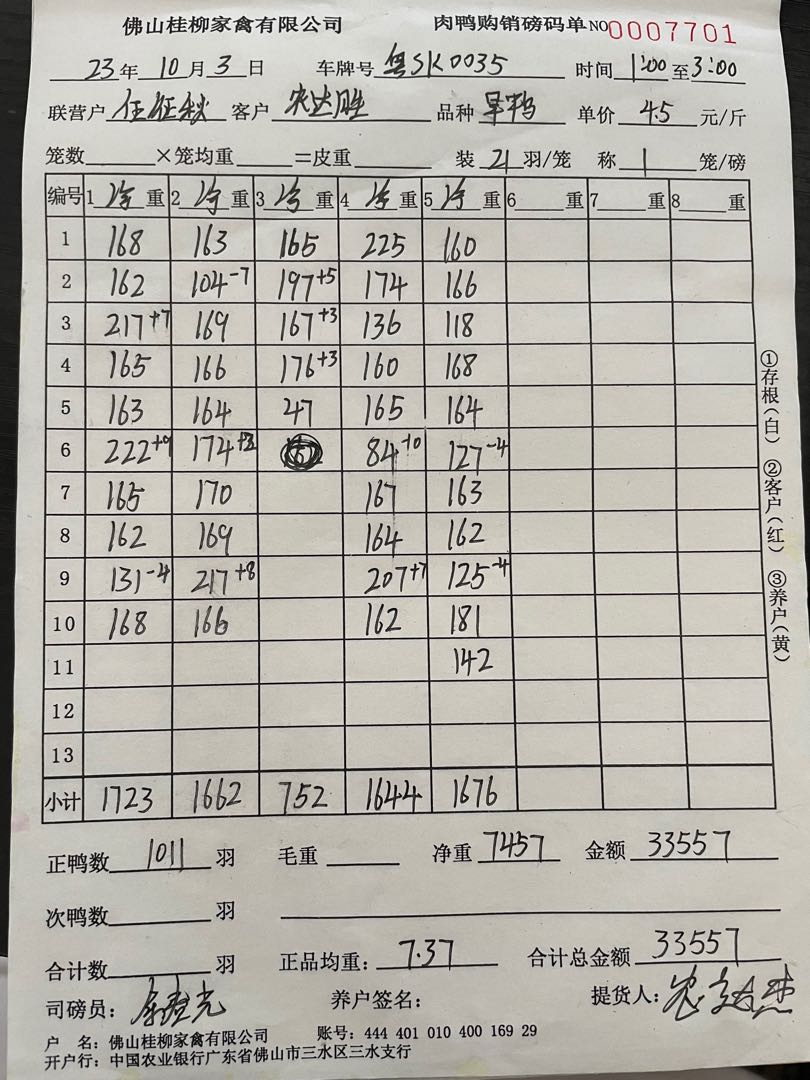 佛山桂柳家禽有限公司 肉鸭购销磅码单 NO 0007701
23年 10月 3日 车牌号 粤SK0035 时间 1:00 至 3:00
联营户 任征秋 客户 农达胜 品种 旱鸭 单价 4.5 元/斤
笼数 ×笼均重 =皮重 装 21 羽/笼 称 1 笼/磅
编号 1 净 重 2 净 重 3 净 重 4 净 重 5 净 重 6 重 7 重 8 重
1 168 163 165 225 160
2 162 104-7 197+5 174 166
3 217+7 169 167+3 136 118
4 165 166 176+3 160 168
5 163 164 47 165 164
6 222+9 174+2 84 127-4
7 165 170 167 163
8 162 169 164 162
9 131-4 217+8 207+7 125-4
10 168 166 162 181
11 142
12
13
小计 1723 1662 752 1644 1676
正鸭数 1011 羽 毛重 净重 7457 金额 33557
次鸭数 羽
合计数 羽 正品均重: 7.37 合计总金额 33557
司磅员: 养户签名: 提货人:
户 名: 佛山桂柳家禽有限公司 账号: 444 401 010 400 169 29
开户行: 中国农业银行广东省佛山市三水区三水支行
①存根(白) ②客户(红) ③养户(黄)